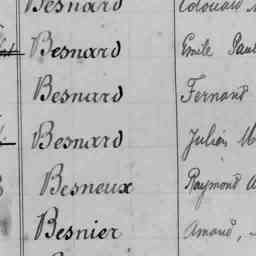 Besnard Edouard
Besnard Emile Paul
Besnard Fernand
Besnard Julien
Besneux Raymond
Besnier Amand,